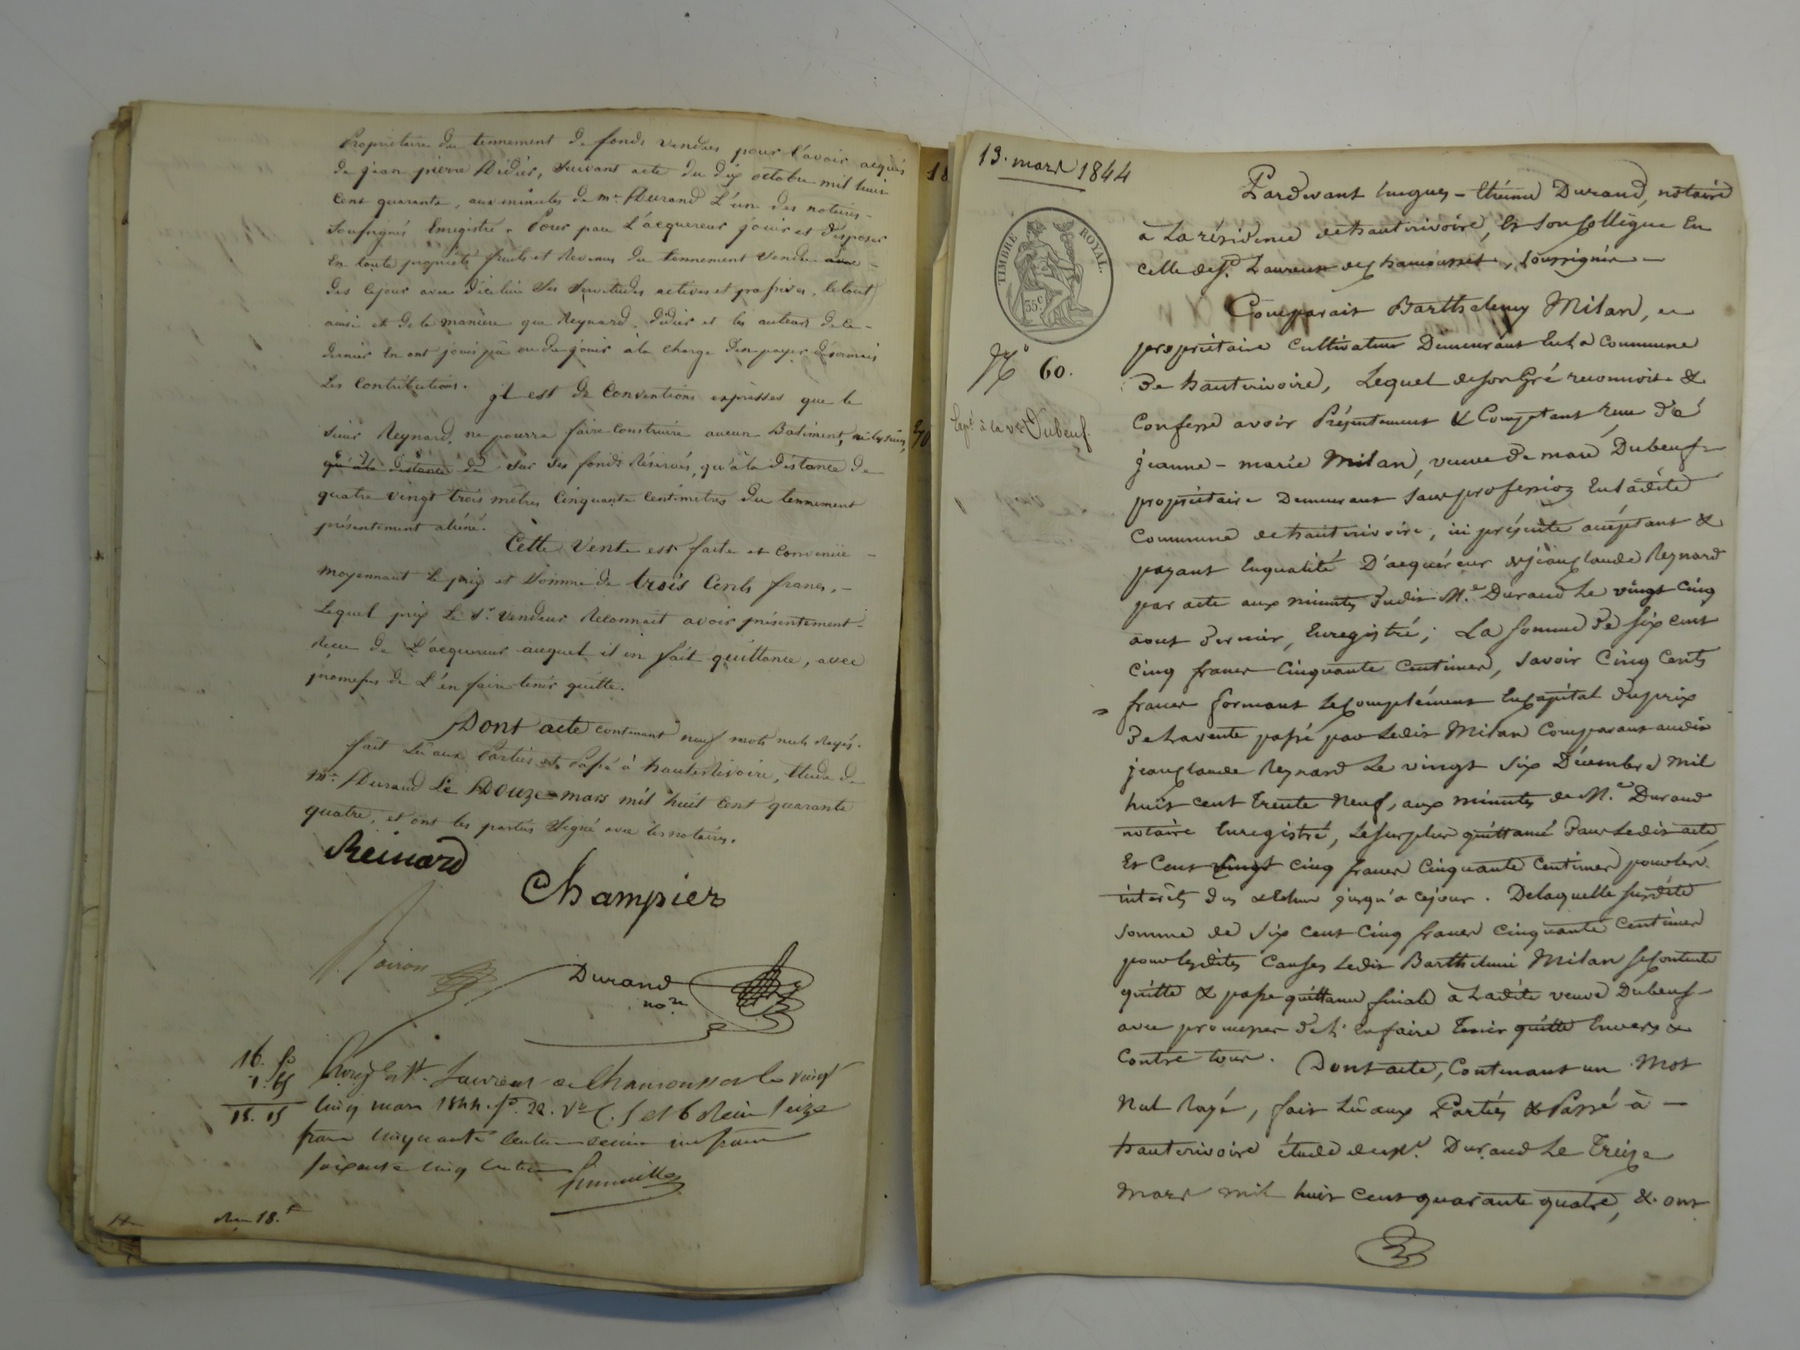 Propriétaire du tennement de fonds vendus pour l'avoir acquis
de jean pierre Didier, suivant acte du dix octobre mil huit
cent quarante, aux minutes de me Durand L'un des notaires
soussignés Enregistré. Pour par L'acquereur jouir et disposer
En toute propriété fruits et Revenus du tennement vendu
dès cejour avec icelui Ses Servitudes actives et passives, letout
ainsi et de la manière que Reynard, Didier et les auteurs de ce
dernier En ont joui pu ou du jouir à la charge d'en payer desormais
Les Contributions. il est de Conventions expresses que le
sieur Reynard, ne pourra faire Construire aucun Batiment,
qu'à la distance de sur ses fonds Réservés, qu'à la distance de
quatre vingt trois mètres Cinquante Centimètres du tennement
présentement aliéné.
Cette Vente est faite et Convenue
moyennant Le prix et Somme de trois Cents francs,
Lequel prix Le Sr. Vendeur Reconnait avoir présentement
Recu de L'acquereur auquel il en fait quittance, avec
promesse de L'en faire tenir quitte.
Dont acte contenant neuf mots nuls Rayés.
fait Lu aux Parties et Passé à hauterivoire, Etude de
me. Durand Le Douze mars mil huit cent quarante
quatre, et ont les parties Signé avec les notaires.
Reinard
Champier
Durand
nore
16. 50
1. 65
18. 15
Enregt. à St. Laurent de Chamousset le vingt
Cinq mars 1844. fo. 22. Vo C. 5 et 6 Recu Seize
francs Cinquante Centimes decime un franc
soixante cinq Centimes
18
13. mars 1844
TIMBRE ROYAL.
35c
No 60.
Expé. à la ve. Dubeuf.
Pardevant hugues-Etienne Durand, notaire
à La résidence de hauterivoire, Et Son Collègue En
celle de St. Laurent de chamousset, soussignés
Comparait Barthelemy Milan,
propriétaire Cultivateur Demeurant En La Commune
De hauterivoire, Lequel de son Gré reconnoit &
Confesse avoir Présentement & Comptant reçu de
jeanne-marie Milan, veuve de marc Dubeuf
propriétaire Demeurant Sans profession En Ladite
Commune de hauterivoire, ici présente acceptant &
payant En qualité D'acquéreur de jean claude Reynard
par acte aux minutes Dudit Me. Durand Le vingt cinq
aout Dernier, Enregistré; La somme De six cent
cinq francs Cinquante Centimes, Savoir Cinq Cents
francs formant Le Complément En Capital du prix
De La vente passé par Ledit Milan Comparant audit
jean claude Reynard Le vingt Six Décembre mil
huit cent trente Neuf, aux minutes de Me. Durand
notaire Enregistré, Le Surplus quittancé Dans Ledit acte,
Et Cent vingt Cinq francs Cinquante Centimes pour les
intérêts Dus & Echus jusqu'à cejour. De laquelle susdite
somme de Six Cent Cinq francs Cinquante Centimes
pour lesdites Causes Ledit Barthelemi Milan se Contente
quitte & passe quittance finale à Ladite veuve Dubeuf
avec promesse de L'En faire Tenir quitte Envers &
Contre tous. Dont acte, Contenant un mot
Nul Rayé, fait Lu aux Parties & Passé à
hauterivoire étude de Me. Durand Le Treize
mars mil huit cent quarante quatre, & ont